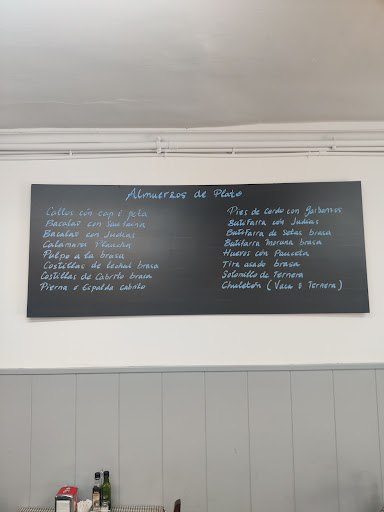 Almuerzos de Plato
Callos con cap i pota
Bacalao con Sanfaina
Bacalao con Judias
Calamares Plancha
Pulpo a la brasa
Costillas de lechal brasa
Costillas de Cabrito brasa
Pierna o Espalda cabrito
Pies de Cerdo con Garbanzos
Butifarra con Judias
Butifarra de Setas brasa
Butifarra Moruna brasa
Huevos con Panceta
Tira asado brasa
Solomillo de Ternera
Chuletón (Vaca o Ternera)